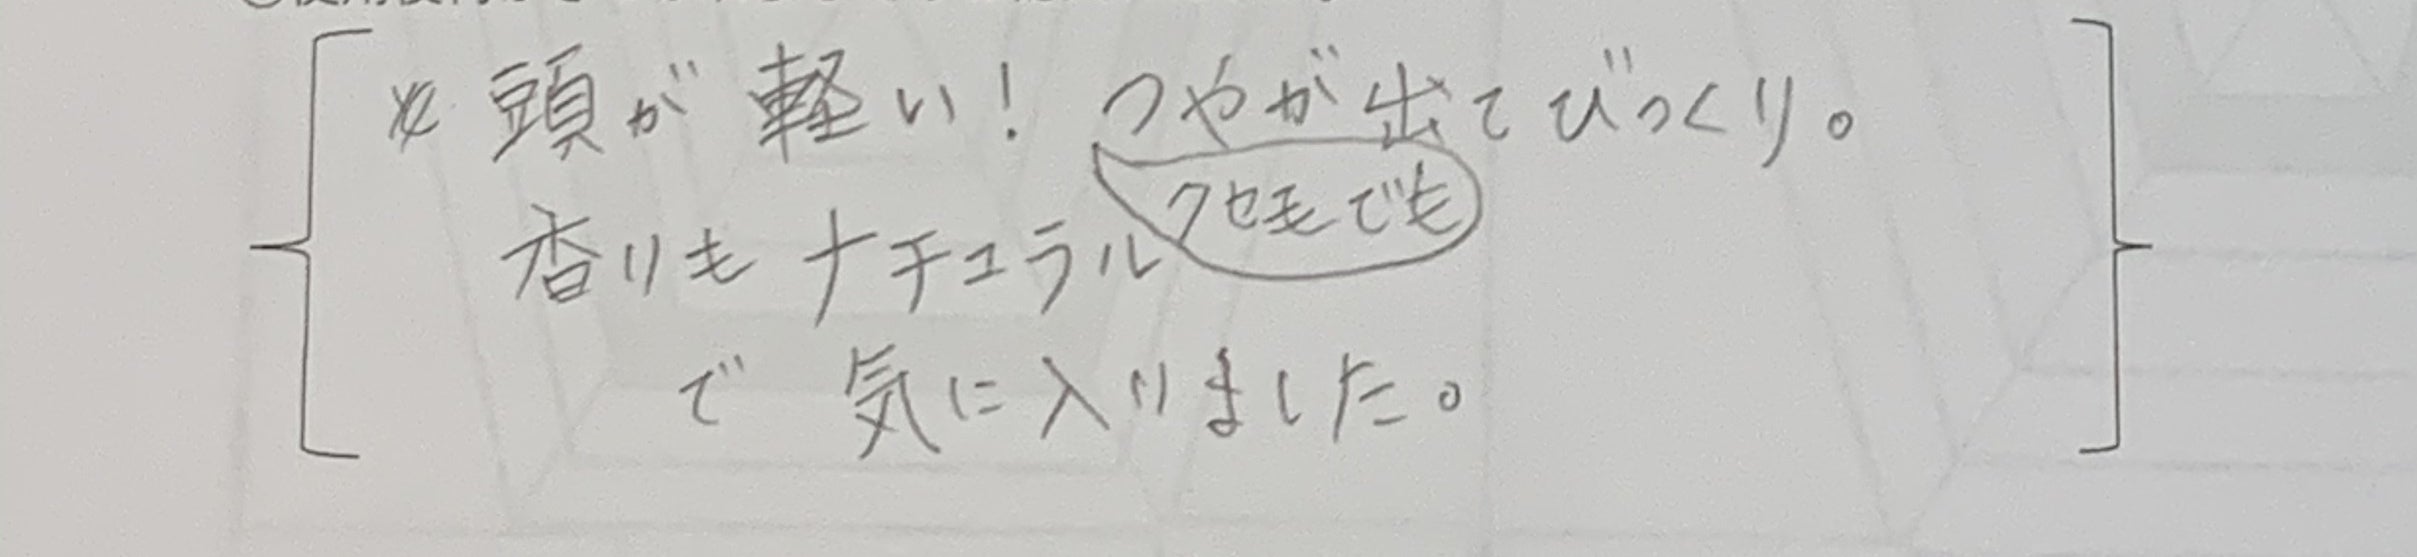 頭が軽い! つやが出てびっくり。
クセ毛でも
香りもナチュラル
で 気に入りました。